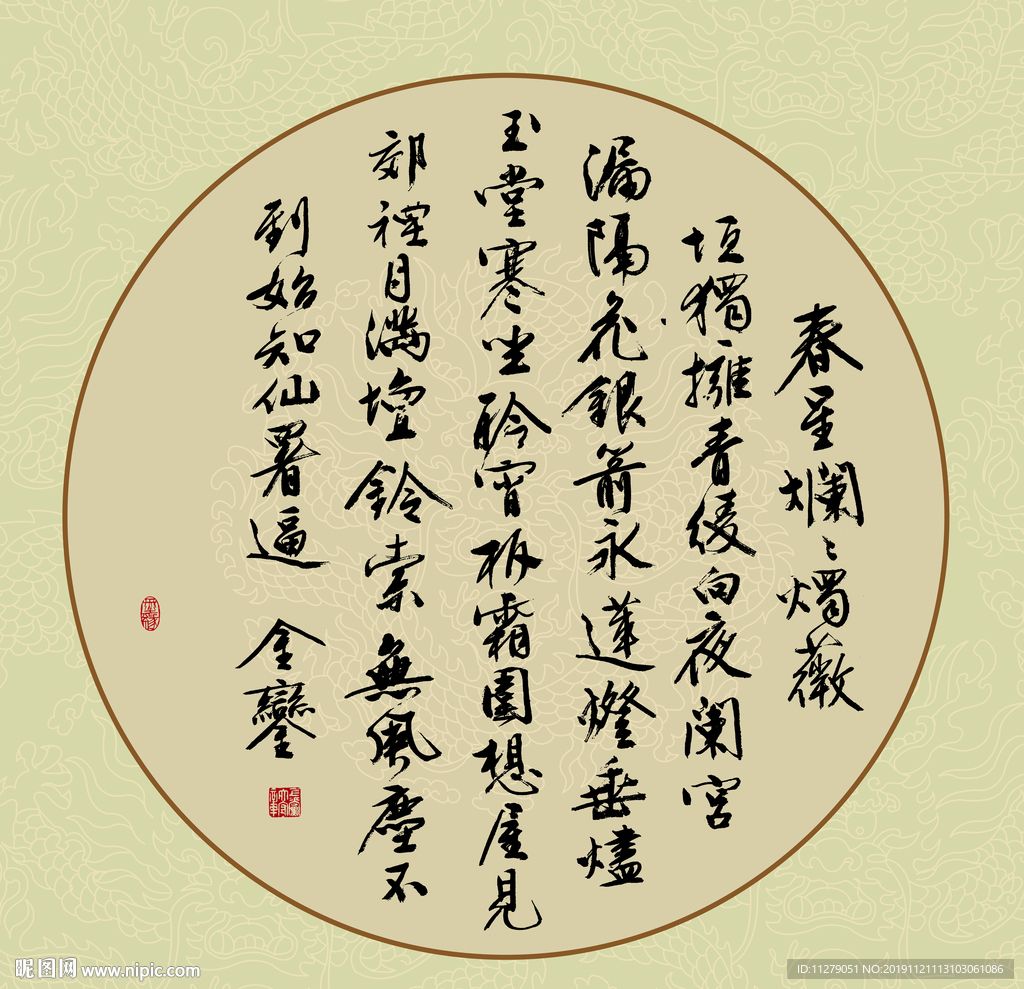 春星爛〻燭薇
垣獨擁青綾向夜闌宮
漏隔花銀箭永蓮燈垂燼
玉堂寒坐聆宵柝霜園想屋見
郊裡月滿壇鈴索無風塵不
到始知仙署逼金鑾
昵图网 www.nipic.com
ID:11279051 NO:20191121113103061086